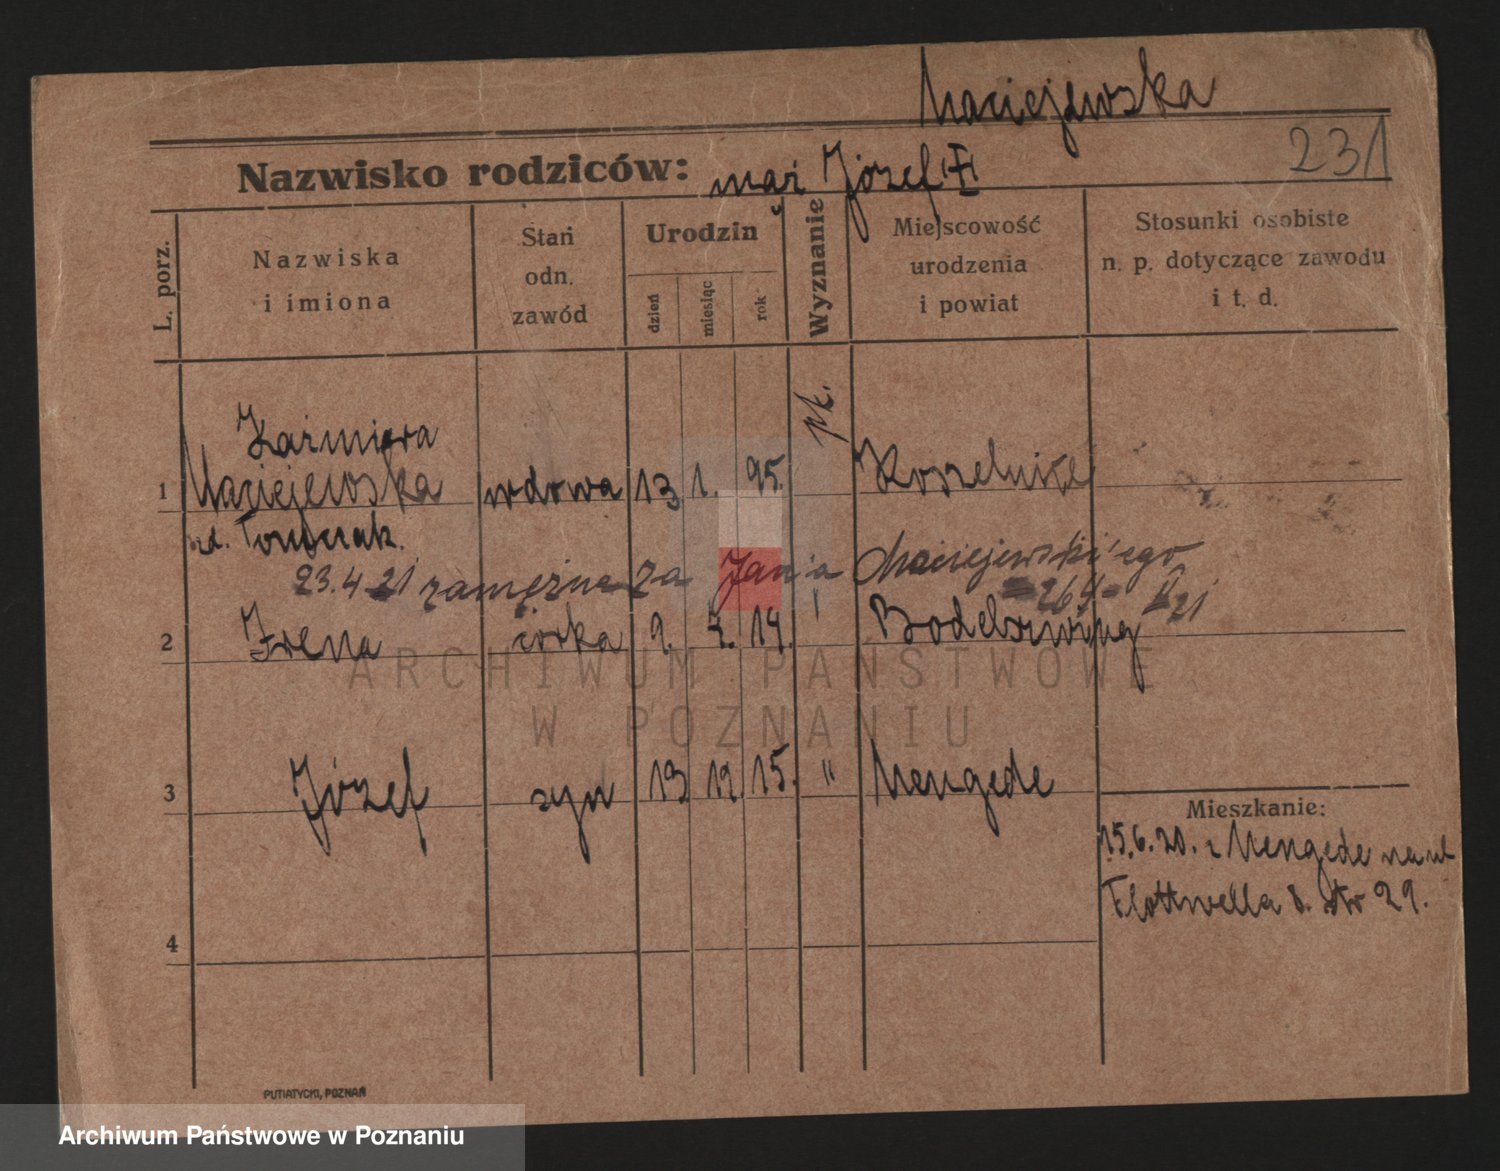 Maciejewska
231
Nazwisko rodziców: mąż Józef
L. porz.
Nazwiska
i imiona
Stan
odn.
zawód
Urodzin
dzień
miesiąc
rok
Wyznanie
Miejscowość
urodzenia
i powiat
Stosunki osobiste
n. p. dotyczące zawodu
i t. d.
Kaźmiera
1 Maciejewska wdowa 13 1. 95. kt. Koszelnik
23.4 21 zamężna za Jan'a Maciejewski'ego
2 Irena córka 9. 7. 14. Bodelswing
3 Józef syn 13 12 15. " Mengede
4
Mieszkanie:
15.6.20. z Mengede na ul
Flottwella 8. str 29.
PUTIATYCKI, POZNAŃ
ARCHIWUM PAŃSTWOWE
W POZNANIU
Archiwum Państwowe w Poznaniu